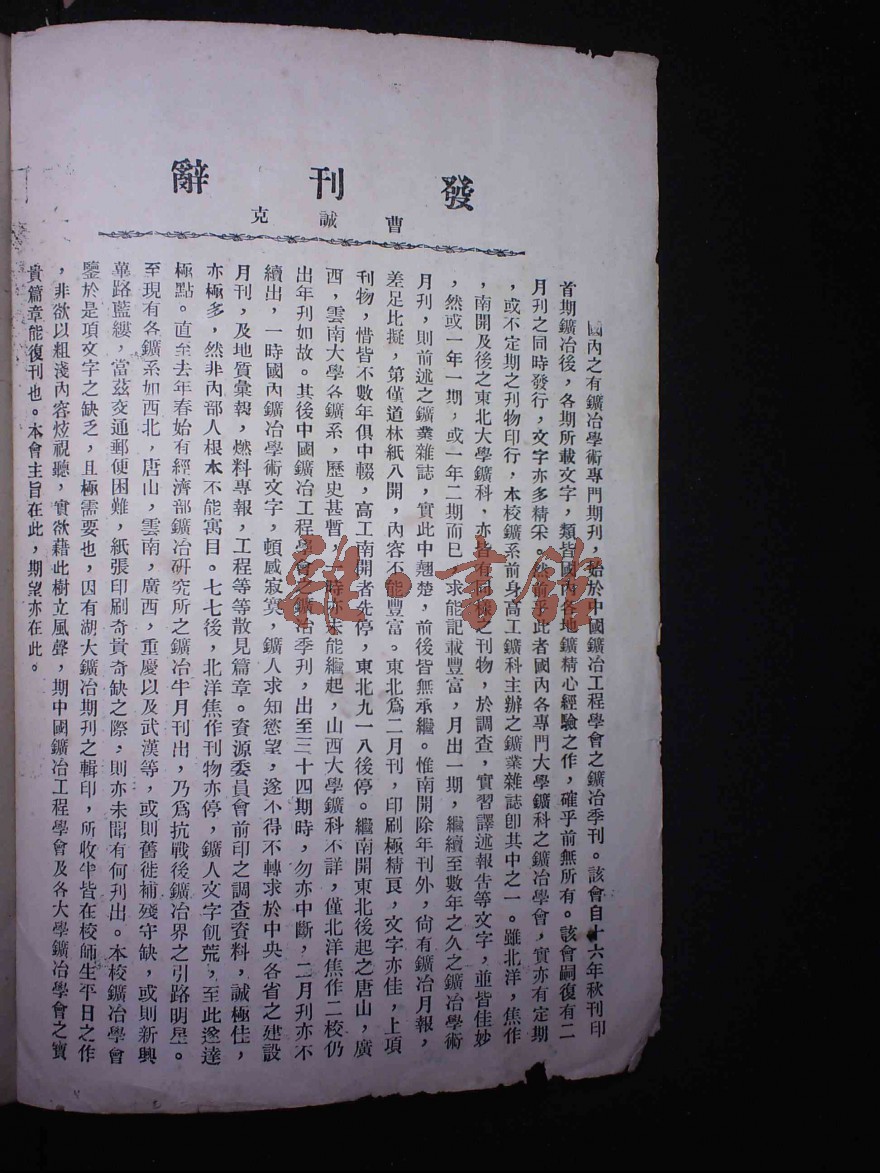 發刊辭
曹誠克
國內之有鑛冶學術專門期刊，始於中國鑛冶工程學會之鑛冶季刊。該會自十六年秋刊印
首期鑛冶後，各期所載文字，類皆國內各地鑛精心經驗之作，確乎前無所有。該會嗣復有二
月刊之同時發行，文字亦多精采。然前乎此者國內各專門大學鑛科之鑛冶學會，實亦有定期
，或不定期之刊物印行，本校鑛系前身高工鑛科主辦之鑛業雜誌卽其中之一。雖北洋，焦作
，南開及後之東北大學鑛科，亦皆有同樣之刊物，於調查，實習譯述報告等文字，並皆佳妙
，然或一年一期，或一年二期而已，求能記載豐富，月出一期，繼續至數年之久之鑛冶學術
月刊，則前述之鑛業雜誌，實此中翹楚，前後皆無承繼。惟南開除年刊外，尙有鑛冶月報，
差足比擬，第僅道林紙八開，內容不能豐富。東北爲二月刊，印刷極精良，文字亦佳，上項
刊物，惜皆不數年俱中輟，高工南開者先停，東北九一八後停。繼南開東北後起之唐山，廣
西，雲南大學各鑛系，歷史甚暫，一時亦未能繼起，山西大學鑛科不詳，僅北洋焦作二校仍
出年刊如故。其後中國鑛冶工程學會之鑛冶季刊，出至三十四期時，勿亦中斷，二月刊亦不
續出，一時國內鑛冶學術文字，頓感寂寞，鑛人求知慾望，遂不得不轉求於中央各省之建設
月刊，及地質彙報，燃料專報，工程等等散見篇章。資源委員會前印之調查資料，誠極佳，
亦極多，然非內部人根本不能寓目。七七後，北洋焦作刊物亦停，鑛人文字飢荒，至此遂達
極點。直至去年春始有經濟部鑛冶研究所之鑛冶半月刊出，乃爲抗戰後鑛冶界之引路明星。
至現有各鑛系如西北，唐山，雲南，廣西，重慶以及武漢等，或則舊徙補殘守缺，或則新興
蓽路藍縷，當茲交通郵便困難，紙張印刷奇貴奇缺之際，則亦未聞有何刊出。本校鑛冶學會
鑒於是項文字之缺乏，且極需要也，因有湖大鑛冶期刊之輯印，所收半皆在校師生平日之作
，非欲以粗淺內容炫視聽，實欲藉此樹立風聲，期中國鑛冶工程學會及各大學鑛冶學會之寶
貴篇章能復刊也。本會主旨在此，期望亦在此。
雜·書館